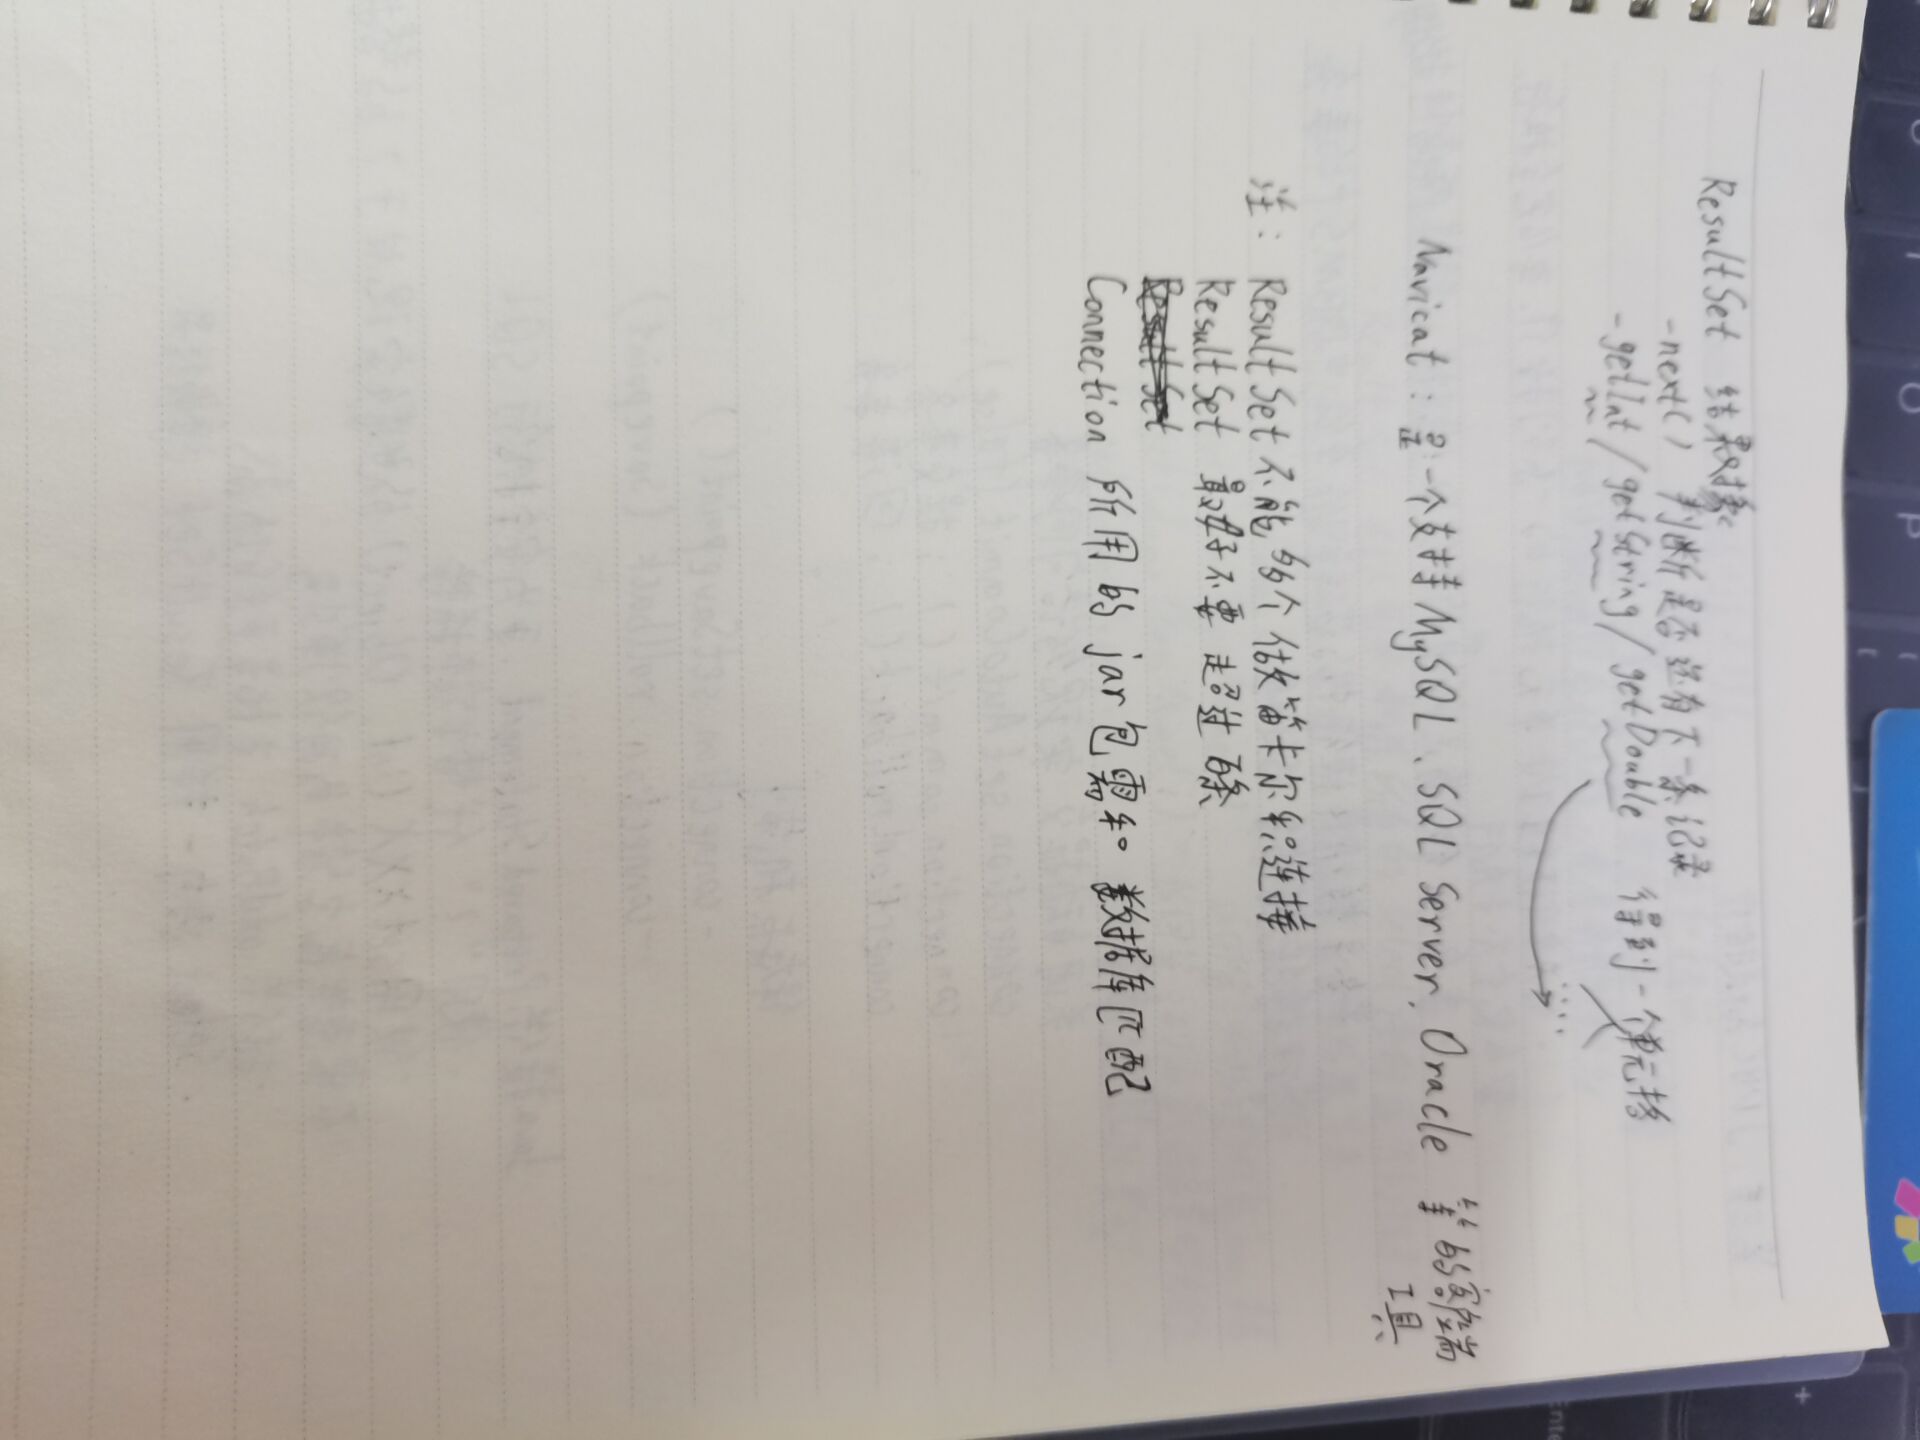 ResultSet 结果对象
-next() 判断是否还有下一条记录
-getInt/getString/getDouble 得到一个单元格
Navicat：是一个支持MySQL、SQL Server、Oracle 等的客户端
工具
注：ResultSet不能多个做笛卡尔乘积连接
ResultSet 最好不要超过百条
Connection 所用的jar包需和 数据库匹配